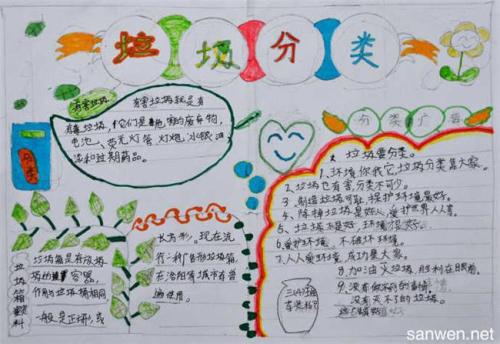 垃圾分类
有害垃圾
有害垃圾就是有
毒垃圾,它们是
电池、荧光灯管、灯炮、水银温
和过期药品。
分类广告
垃圾要分类。
1、环境你我它,垃圾分类靠大家。
2、垃圾也有害,分类不可少。
3、制造垃圾可耻,保护环境最好。
4、除掉垃圾是好心,爱护世界人人喜。
5、垃圾不是好,环境很好。
6、爱护环境,不破坏环境。
7、人人懂环境,成功靠大家。
8、加油灭垃圾,胜利在眼前。
9、没有做不到的事情
没有灭不了的垃圾。
垃圾箱资料
垃圾箱是存放垃
圾的容器,
作用与垃圾桶相同
一般是正方形,或
长方形。现在流
行一种广告形垃圾箱
在洛阳等城市有普
遍使用。
sanwen.net